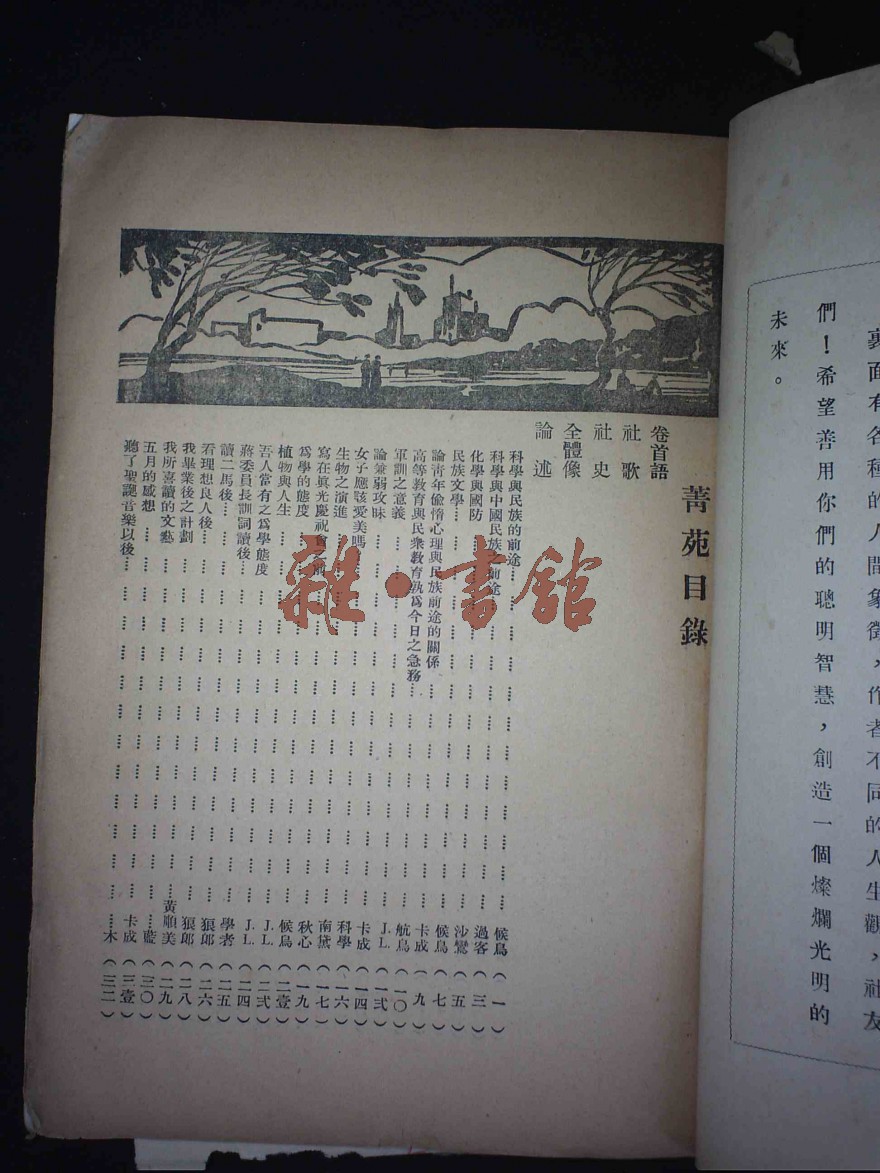 裏面有各種的人間象徵，作者不同的人生觀，社友
們！希望善用你們的聰明智慧，創造一個燦爛光明的
未來。
菁苑目錄
卷首語
社歌
社史
全體像
論述
科學與民族的前途…………候鳥（一）
科學與中國民族之前途…………過客（三）
化學與國防…………沙鷺（五）
民族文學…………候鳥（七）
論靑年偷惰心理與民族前途的關係…………卡成（九）
高等敎育與民衆敎育孰爲今日之急務…………航鳥（一〇）
軍訓之意義…………J.L.（一弍）
論兼弱攻昧…………卡成（一四）
女子應該愛美嗎…………科學（一六）
生物之演進…………南黛（一七）
寫在眞光慶祝會之前…………秋心（一九）
爲學的態度…………候鳥（二壹）
植物與人生…………J.L.（二弍）
吾人當有之爲學態度…………J.L.（二四）
蔣委員長訓詞讀後…………學者（二五）
讀二馬後…………狼郎（二六）
看理想良人後…………狼郎（二八）
我畢業後之計劃…………黃順美（二九）
我所喜讀的文藝…………藍（三〇）
五月的感想…………卡成（三壹）
聽了聖誕音樂以後…………木（三二）
雜·書館